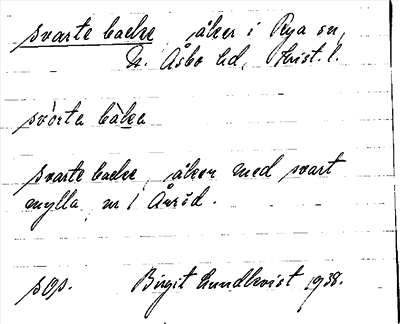 svarte backe, åker i Rya sn,
N. Åsbo hd, Krist. l.
svòrta bàka
svarte backe, åker med svart
mylla, nr 1 Åvröd.
sop. Birgit Lundkvist 1938.